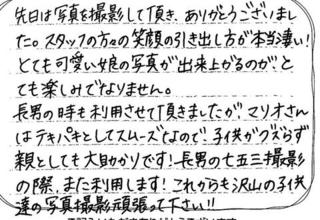 先日は写真を撮影して頂き、ありがとうございまし
た。スタッフの方々の笑顔の引き出し方が本当凄い!
とても可愛い娘の写真が出来上がるのが、と
ても楽しみでなりません。
長男の時も利用させて頂きましたが、マリオさん
はテキパキとしてスムーズなので、子供がグズらず
親としても大助かりです!長男の七五三撮影
の際、また利用します!これからも沢山の子供
達の写真撮影頑張って下さい!!